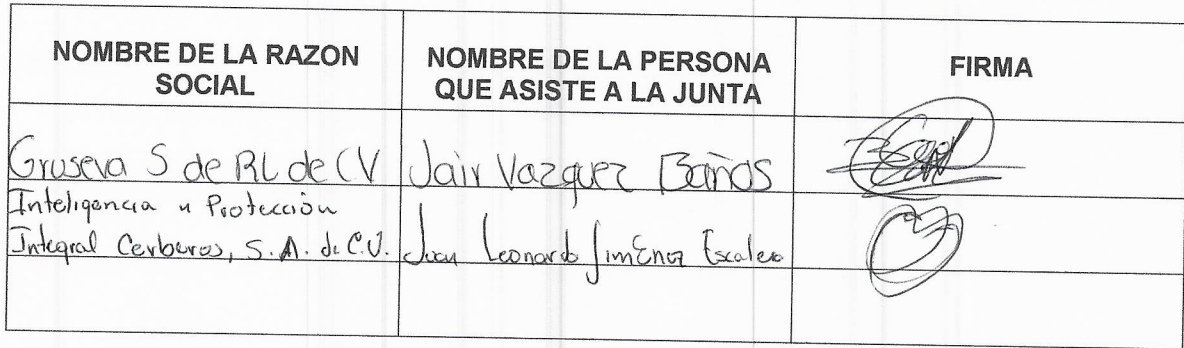 NOMBRE DE LA RAZON
SOCIAL
NOMBRE DE LA PERSONA
QUE ASISTE A LA JUNTA
FIRMA
Gruseva S de RL de CV
Jair Vazquez Baños
Inteligencia y Protección
Integral Cerberos, S.A. de C.V.
Juan Leonardo Jiménez Escalera